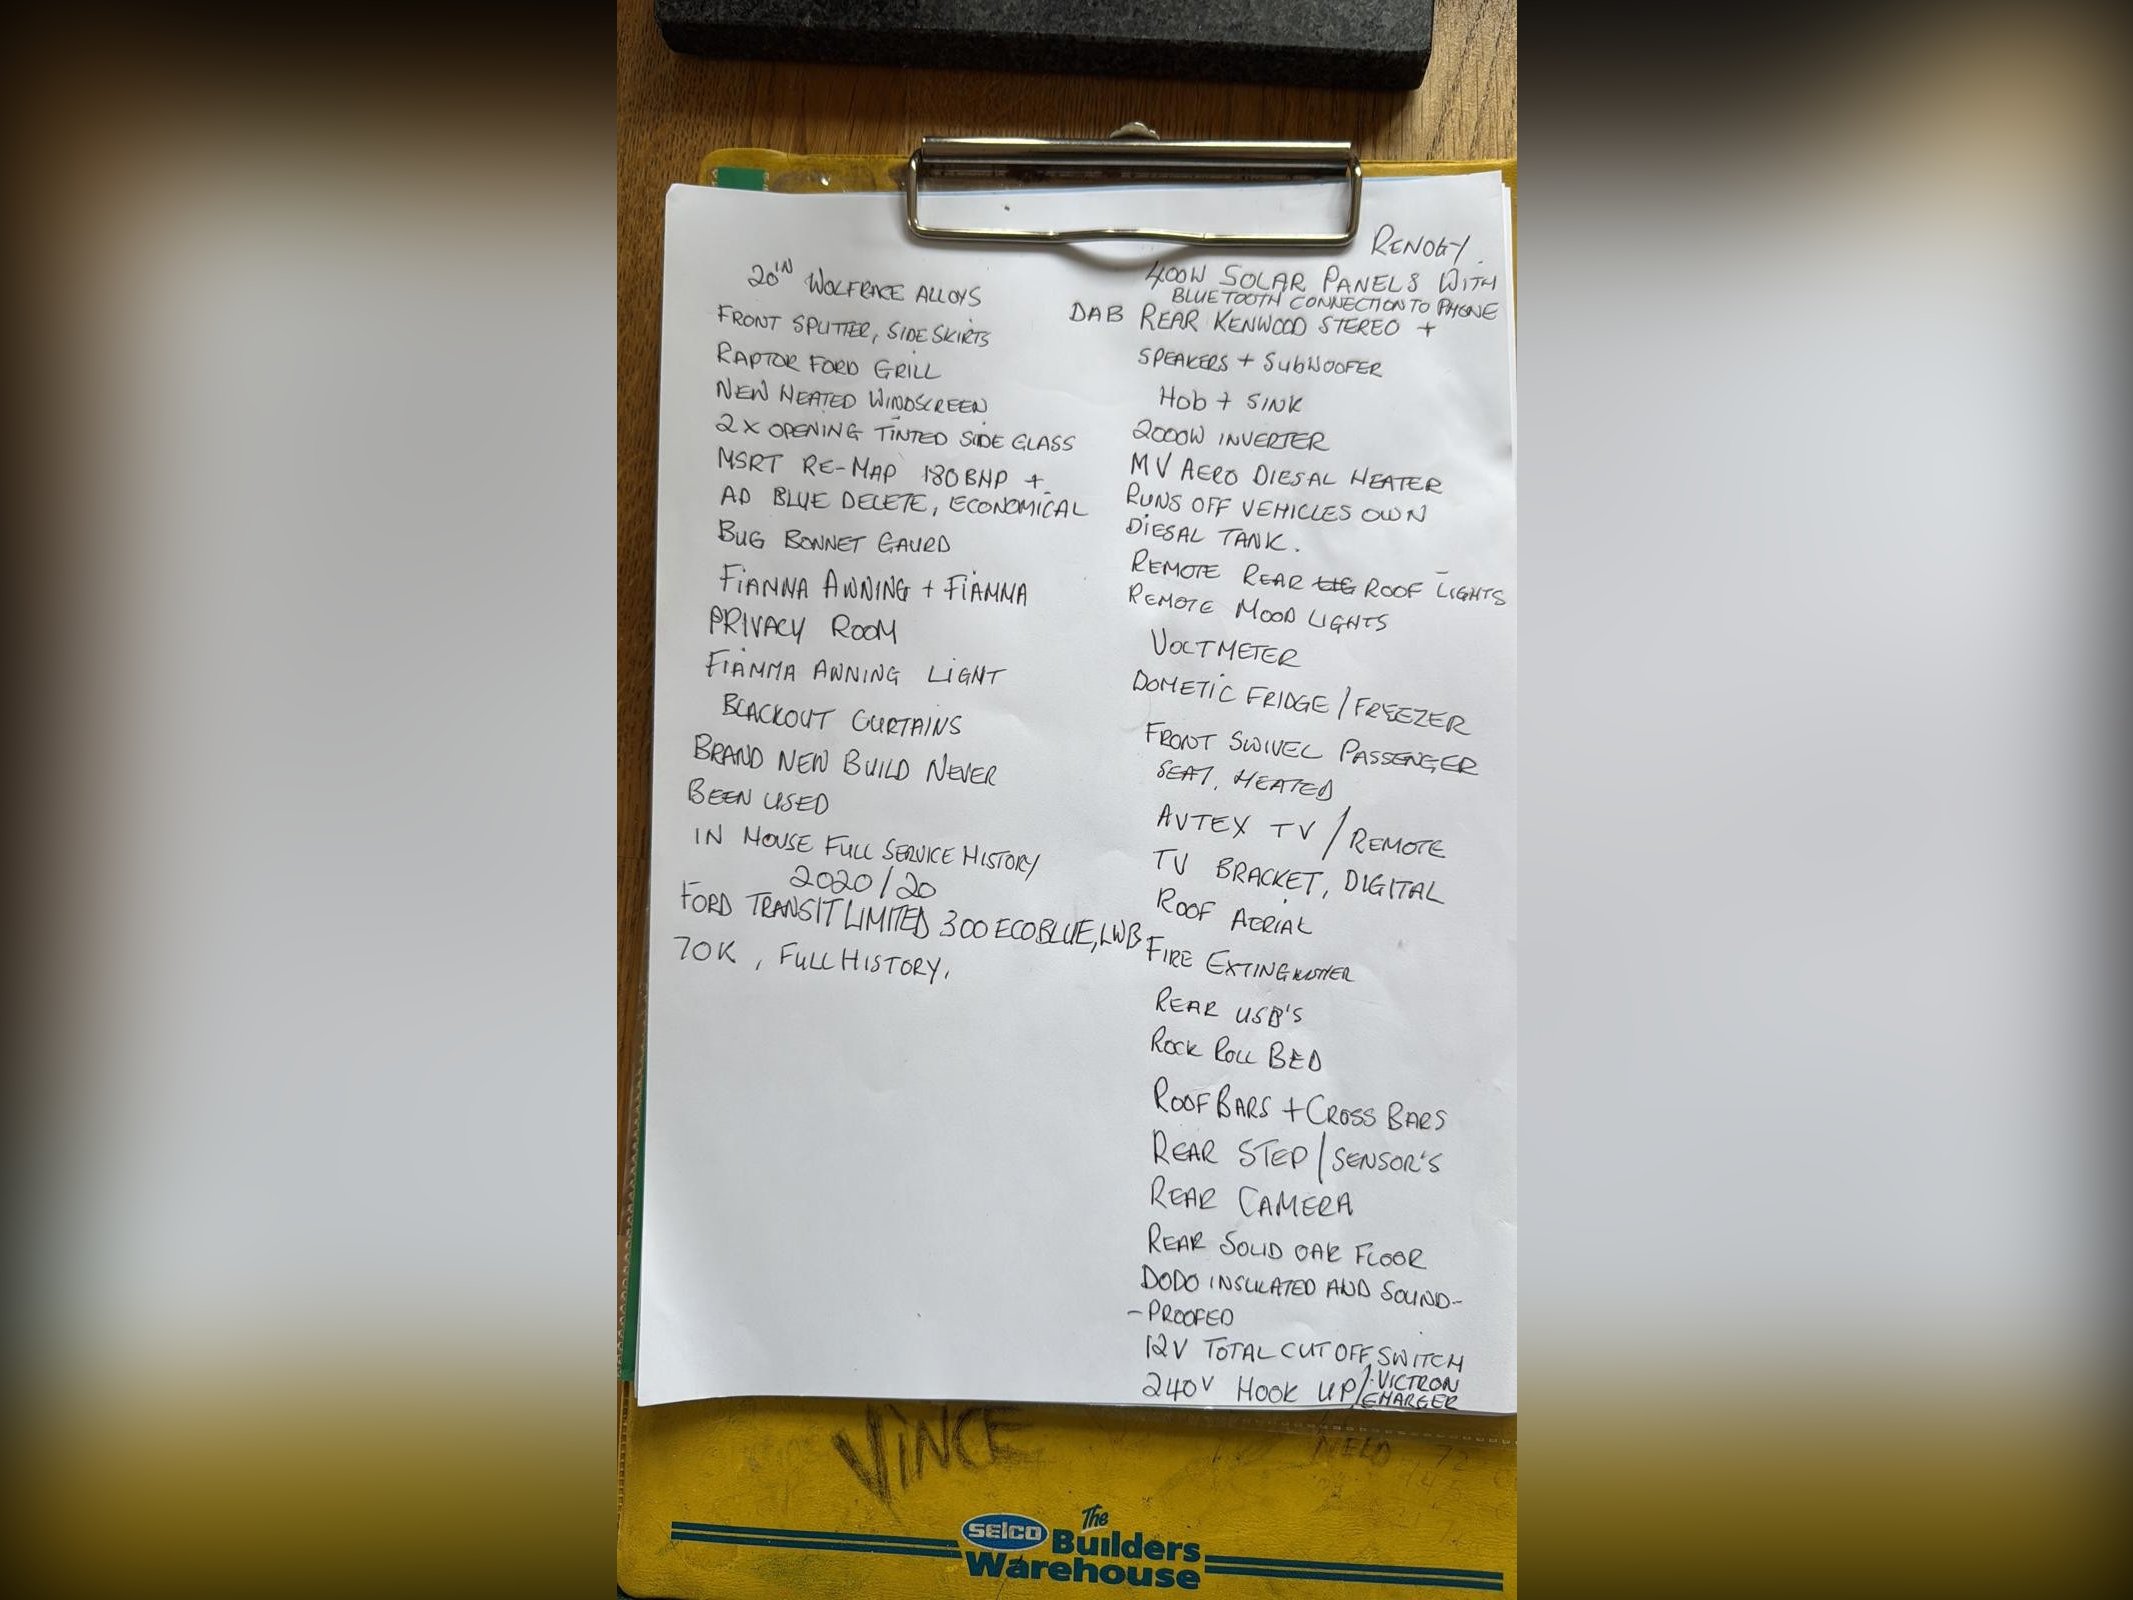 20IN WOLFRACE ALLOYS
FRONT SPLITTER, SIDE SKIRTS
RAPTOR FORD GRILL
NEW HEATED WINDSCREEN
2X OPENING TINTED SIDE GLASS
MSRT RE-MAP 180BHP +
AD BLUE DELETE, ECONOMICAL
BUG BONNET GAURD
FIANNA AWNING + FIAMMA
PRIVACY ROOM
FIAMMA AWNING LIGHT
BLACKOUT CURTAINS
BRAND NEW BUILD NEVER
BEEN USED
IN HOUSE FULL SERVICE HISTORY
2020/20
FORD TRANSIT LIMITED 300 ECOBLUE, LWB
70K, FULL HISTORY,
RENOGY
400W SOLAR PANELS WITH
BLUETOOTH CONNECTION TO PHONE
DAB REAR KENWOOD STEREO +
SPEAKERS + SUBWOOFER
HOB + SINK
2000W INVERTER
MV AERO DIESAL HEATER
RUNS OFF VEHICLES OWN
DIESAL TANK.
REMOTE REAR ROOF LIGHTS
REMOTE MOOD LIGHTS
VOLTMETER
DOMETIC FRIDGE / FREEZER
FRONT SWIVEL PASSENGER
SEAT, HEATED
AVTEX TV / REMOTE
TV BRACKET, DIGITAL
ROOF AERIAL
FIRE EXTINGUISHER
REAR USB'S
ROCK ROLL BED
ROOF BARS + CROSS BARS
REAR STEP / SENSOR'S
REAR CAMERA
REAR SOLID OAK FLOOR
DODO INSULATED AND SOUND-
-PROOFED
12V TOTAL CUT OFF SWITCH
240V HOOK UP / VICTRON
CHARGER
VINCE
selco The Builders
Warehouse